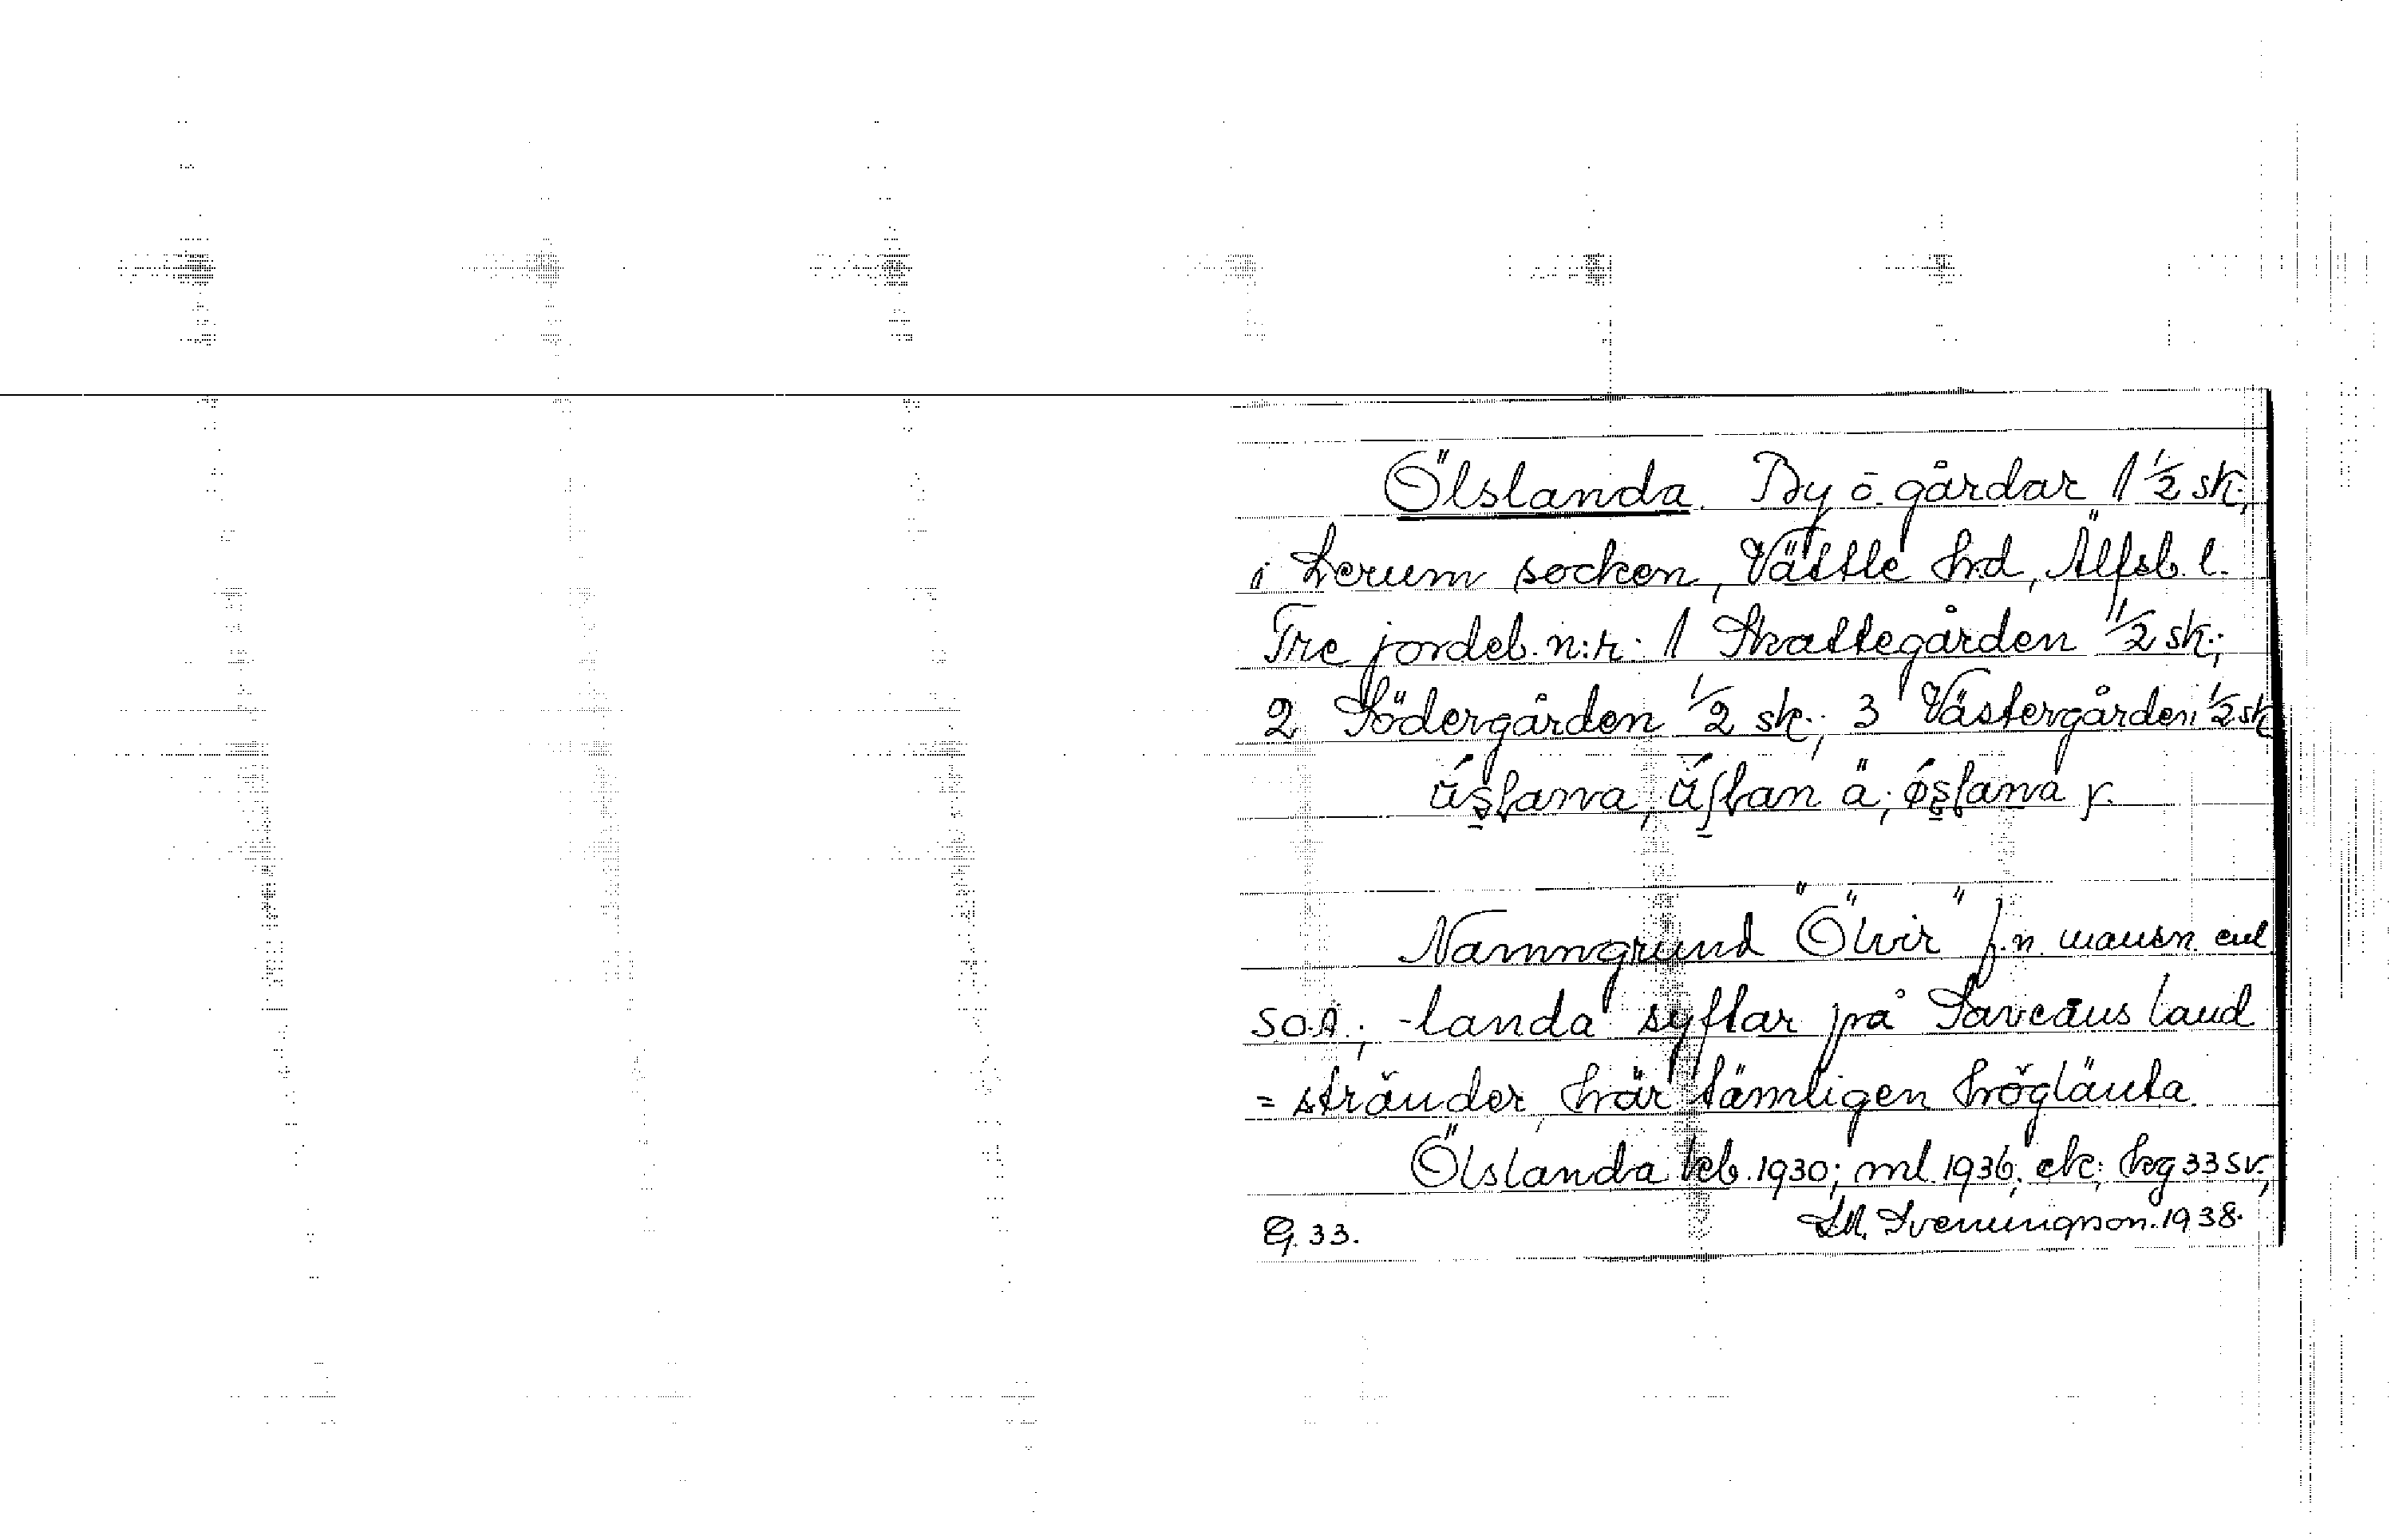 Ölslanda. By o. gårdar 1 1/2 sk.,
i Lerum socken, Vättle hrd, Älfsb. l.
Tre jordeb. n:r: 1 Skattegården 1/2 sk.;
2 Södergården 1/2 sk.; 3 Västergården 1/2 sk
Namngrund "Ölvir" f.n. mansn. enl.
SOÄ.; -landa syftar på Säveåns land
=stränder, här tämligen höglänta.
Ölslanda kb. 1930; ml. 1936; ek; hg 33 sv.;
G. 33.
Svenungson. 1938.